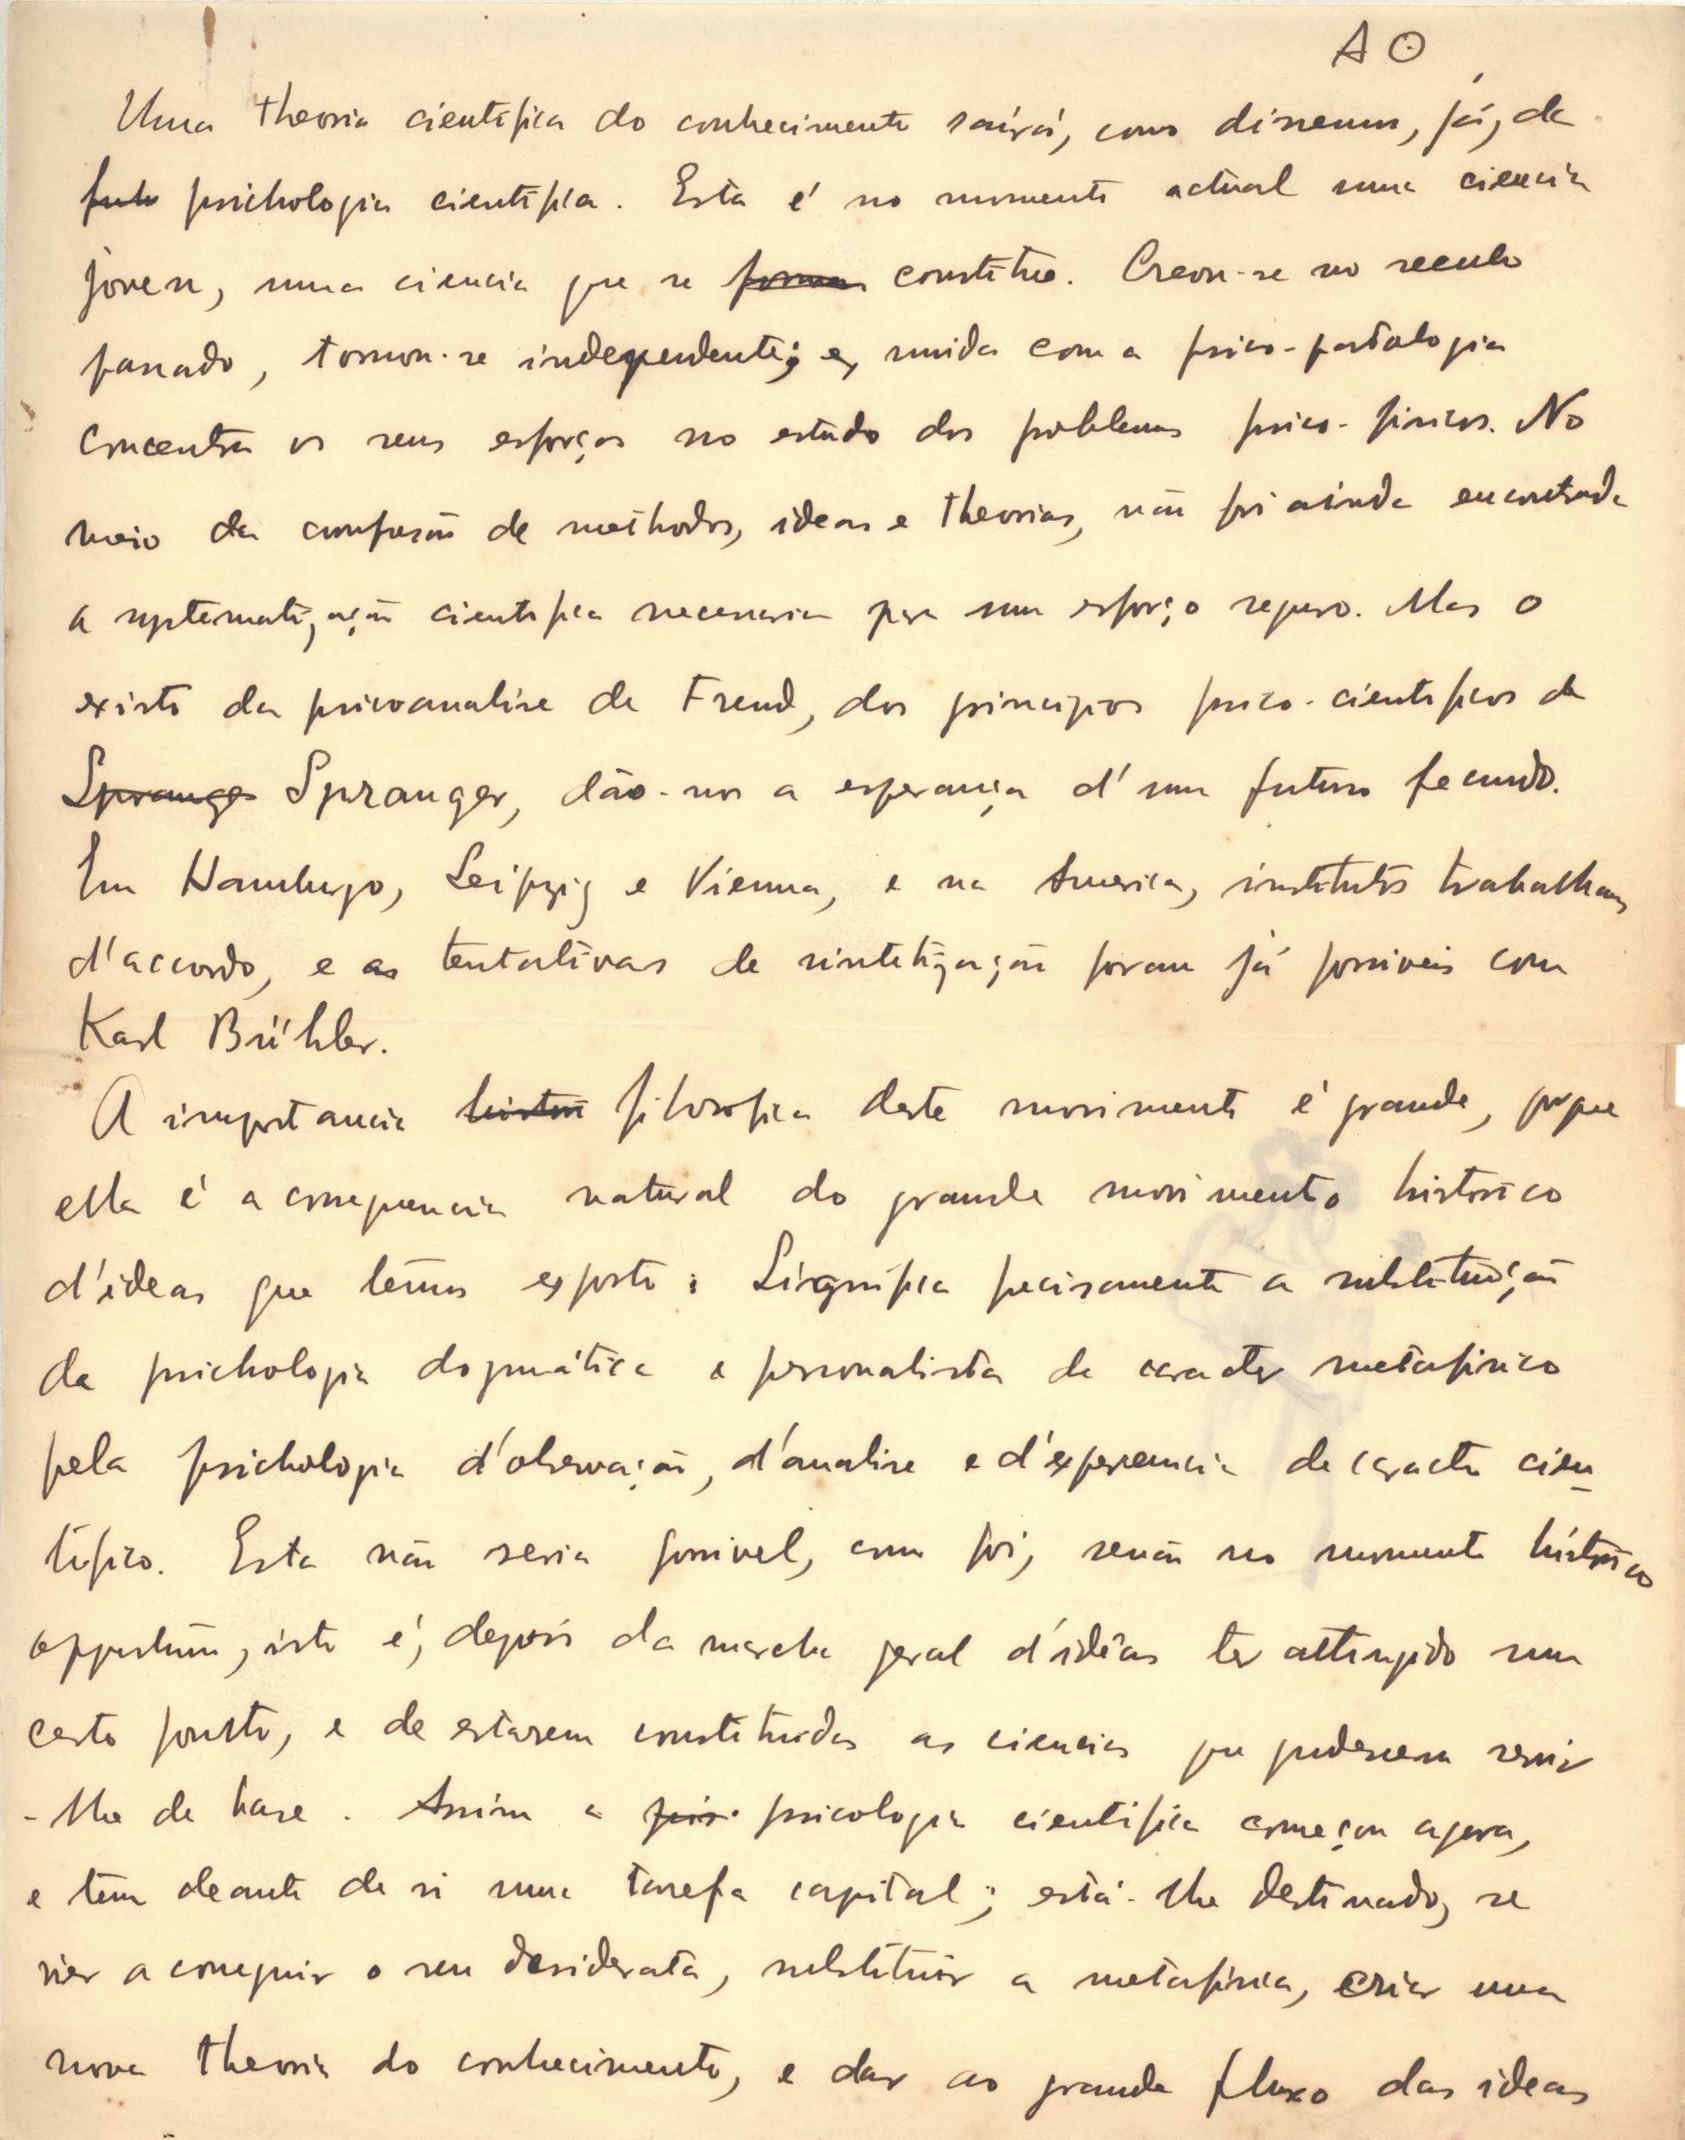 A O
Uma theoria cientifica do conhecimento sairá, como dissemos, já, da
psichologia cientifica. Esta é no momento actual uma ciencia
joven, uma ciencia que se forma constitue. Creou-se no seculo
passado, tornou-se independente; e, unida com a psico-patologia
concentra os seus esforços no estudo dos problemas psico-fisicos. No
meio da confusão de methodos, ideas e theorias, não foi ainda encontrada
a systematização cientifica necessaria para um esforço seguro. Mas o
existo da psicoanalise de Freud, dos principios psico-cientificos de
Spranger Spranger, dão-nos a esperança d'um futuro fecundo.
Em Hamburgo, Leipzig e Vienna, e na America, institutos trabalham
d'accordo, e as tentativas de sintetização foram já possiveis com
Karl Bühler.
A importancia histori filosofica deste movimento é grande, porque
ella é a consequencia natural do grande movimento historico
d'ideas que temos exposto: Significa precisamente a substituição
da psichologia dogmática e personalista de caracter metafisico
pela psichologia d'observação, d'analise e d'experiencia de caracter cien-
tifico. Esta não seria possivel, como foi, senão no momento historico
opportuno, isto é, depois da marcha geral d'idéas ter attingido um
certo ponto, e de estarem constituidas as ciencias que pudessem servir
-lhe de base. Assim a psi. psicologia cientifica começou agora,
e tem deante de si uma tarefa capital; está-lhe destinado, se
vier a conseguir o seu desiderata, substituir a metafisica, criar uma
nova theoria do conhecimento, e dar ao grande fluxo das ideas